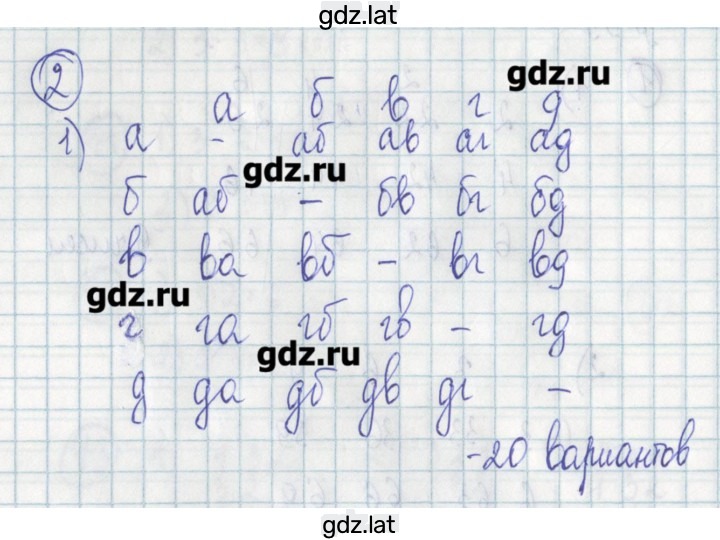 gdz.lat
2
gdz.ru
а б в г д
1) а - аб ав аг ад
gdz.ru
б аб - бв бг бд
в ва вб - вг вд
gdz.ru
г га гб гв - гд
gdz.ru
д да дб дв дг -
-20 вариантов
gdz.lat